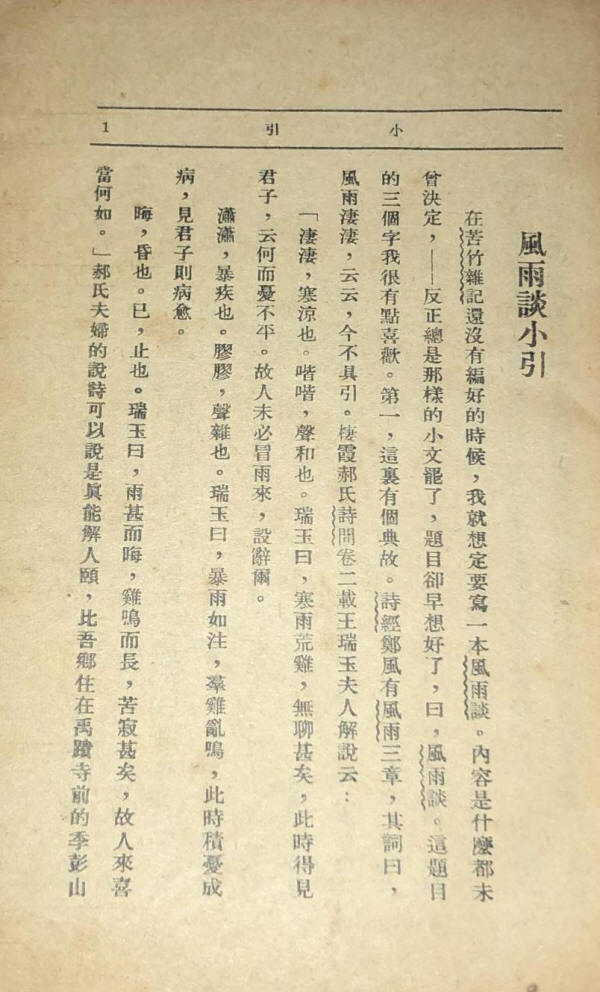 小引
1
風雨談小引
在苦竹雜記還沒有編好的時候，我就想定要寫一本風雨談。內容是什麼都未
曾決定，——反正總是那樣的小文罷了，題目卻早想好了，曰，風雨談。這題目
的三個字我很有點喜歡。第一，這裏有個典故。詩經鄭風有風雨三章，其詞曰，
風雨淒淒，云云，今不具引。棲霞郝氏詩問卷二載王瑞玉夫人解說云：
「淒淒，寒涼也。喈喈，聲和也。瑞玉曰，寒雨荒雞，無聊甚矣，此時得見
君子，云何而憂不平。故人未必冒雨來，設辭爾。
瀟瀟，暴疾也。膠膠，聲雜也。瑞玉曰，暴雨如注，羣雞亂鳴，此時積憂成
病，見君子則病愈。
晦，昏也。已，止也。瑞玉曰，雨甚而晦，雞鳴而長，苦寂甚矣，故人來喜
當何如。」郝氏夫婦的說詩可以說是眞能解人頤，比吾鄉住在禹蹟寺前的季彭山